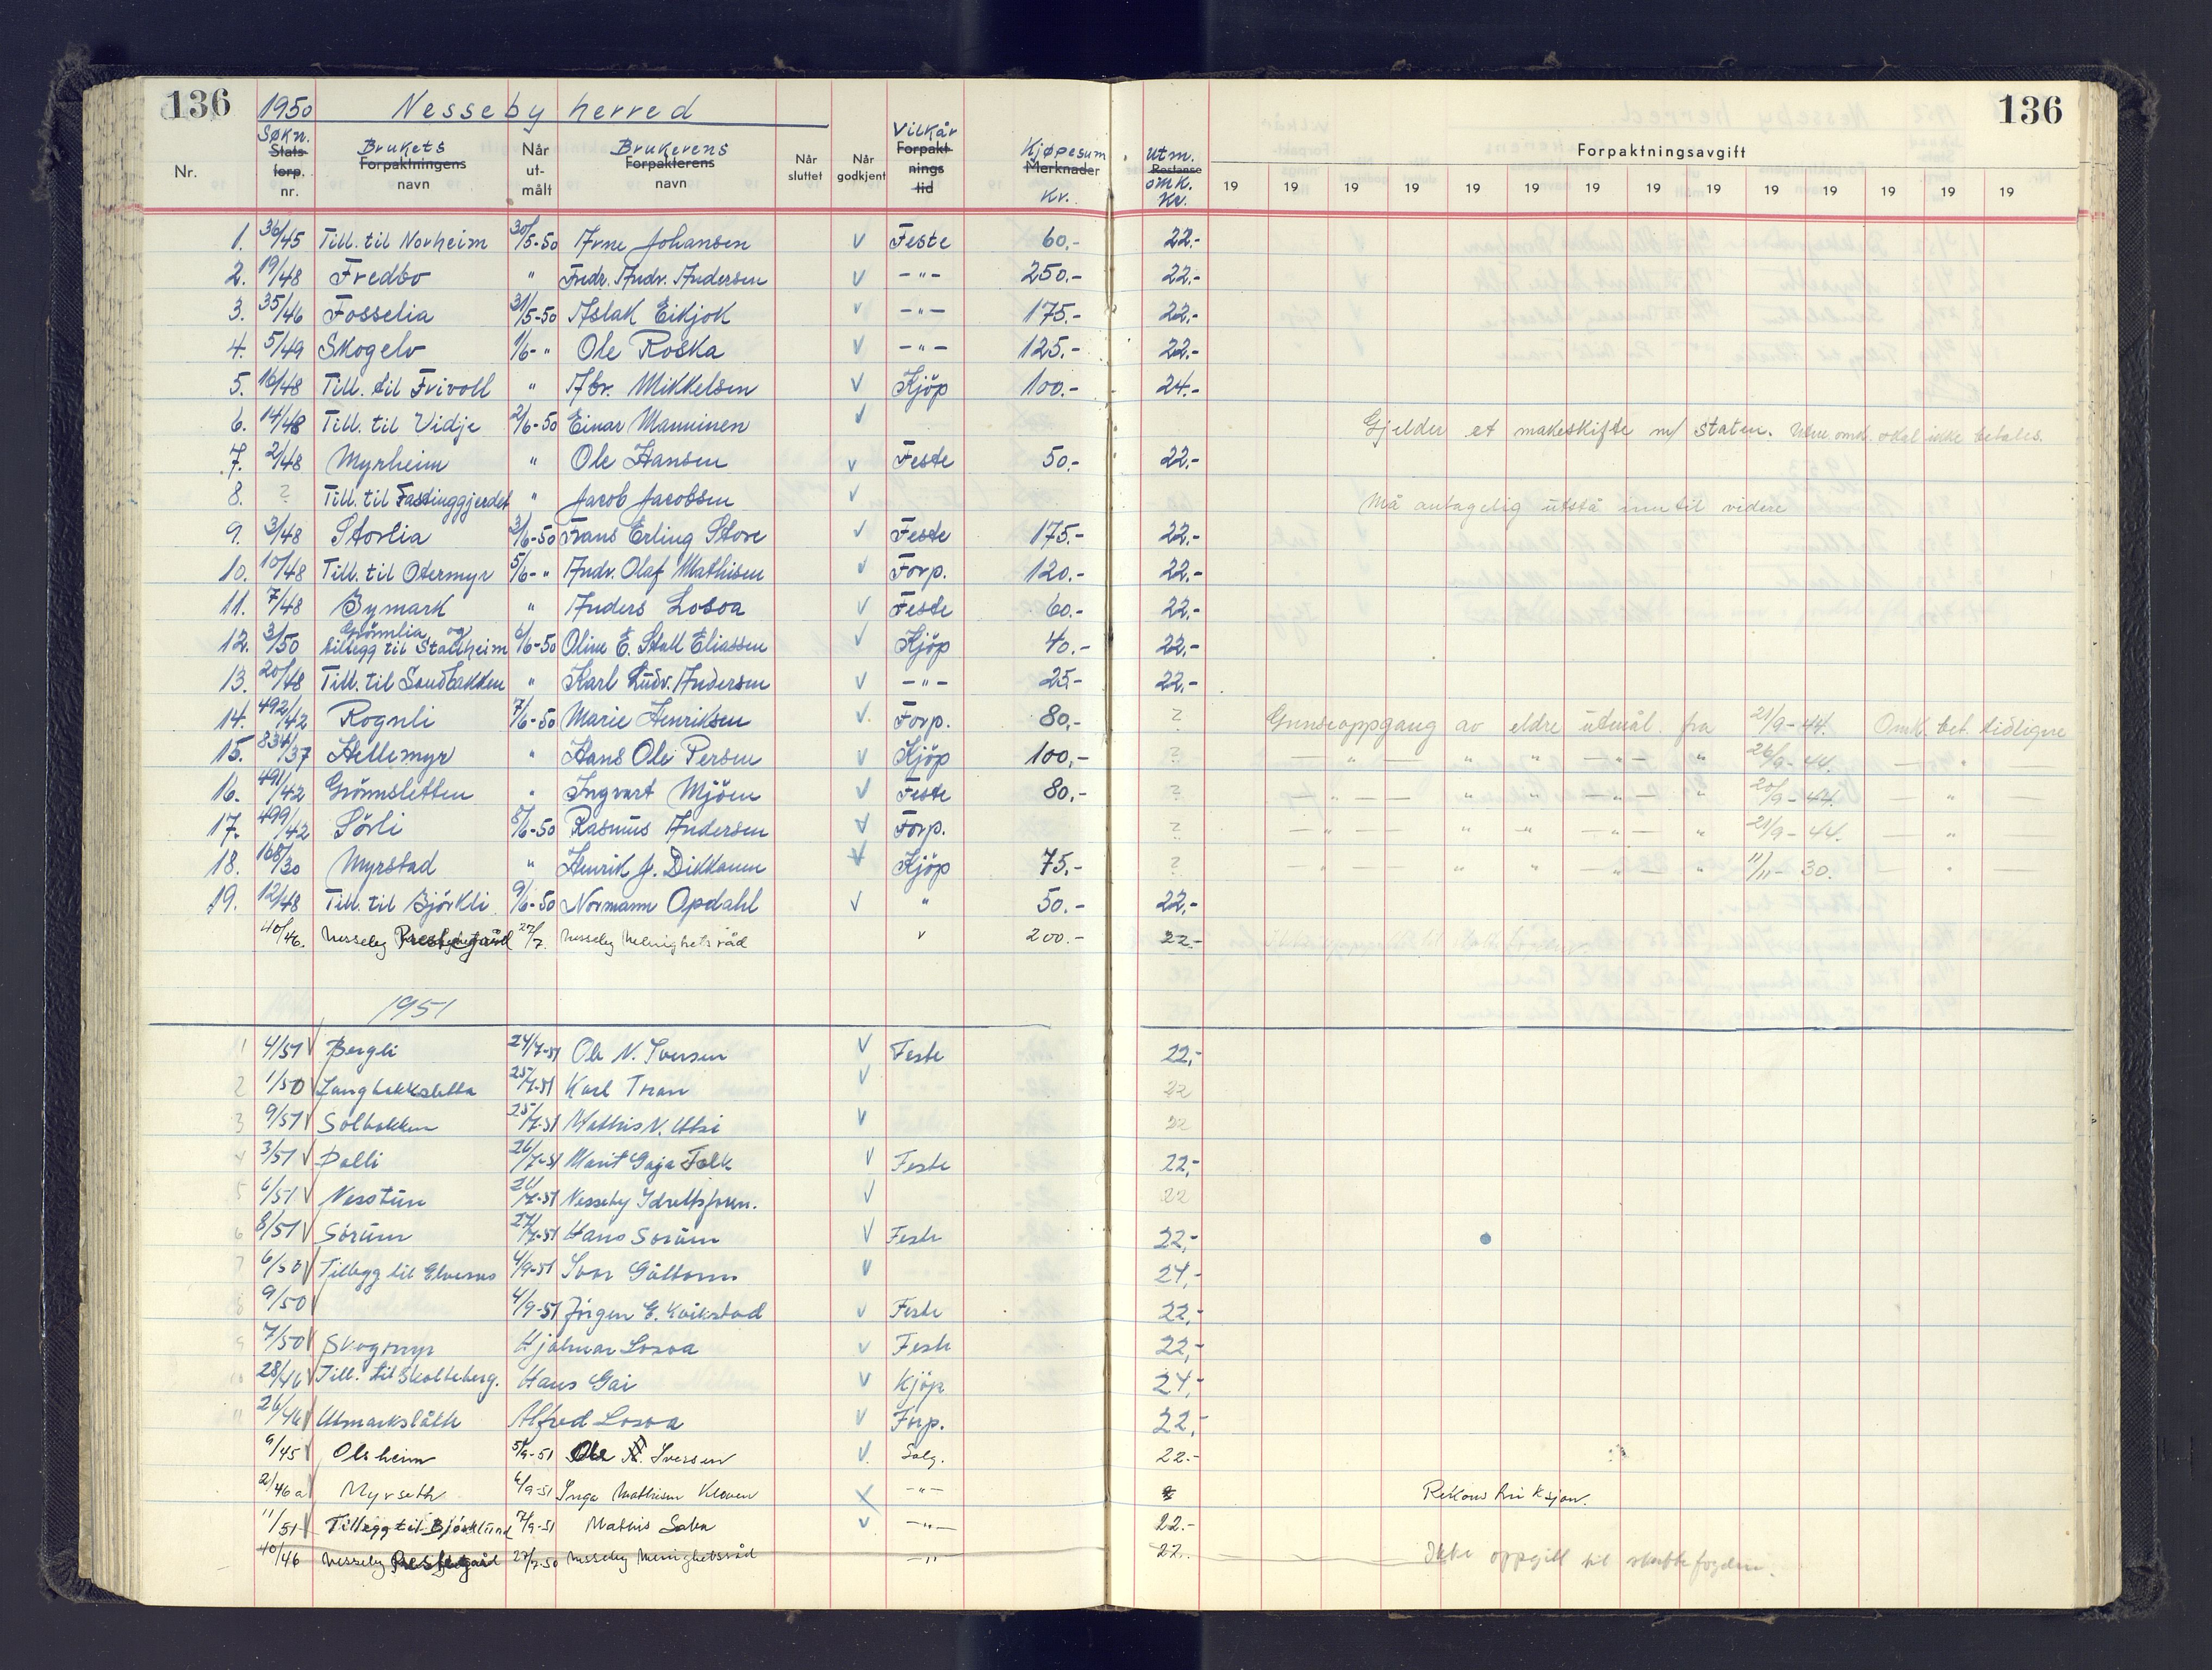 136 1950 Nesseby herred 136
Nr. Søkn. Stats- forp. nr. Brukets Forpaktningens navn Når ut- målt Brukerens Forpakterens navn Når sluttet Når godkjent Vilkår Forpakt- nings tid Kjøpesum Merknader Kr. Utm. Restanse omk. Kr. Forpaktningsavgift
19 19 19 19 19 19 19 19 19 19 19 19 19 19
1. 36/45 Till. til Norheim 30/5-50 Arne Johansen v Feste 60.- 22.-
2. 19/48 Fredbo " Fredr. Andr. Andersen v -"- 250.- 22.-
3. 35/46 Fosselia 31/5-50 Aslak Eikjok v -"- 175.- 22.-
4. 5/49 Skogelv 1/6-" Ole Roska v -"- 125.- 22.-
5. 16/48 Till. til Frivoll " Abr. Mikkelsen v Kjöp 100.- 24.-
6. 14/48 Till. til Vidje 2/6-50 Einar Manninen v Gjelder et makeskifte m/ staten. skal ikke betales.
7. 2/48 Myrheim " Ole Hansen v Feste 50.- 22.-
8. ? Till. til Fastinggjerdet " Jacob Jacobsen v Må antagelig utstå inntil videre
9. 3/48 Storlia 3/6-50 Frans Erling Store v Feste 175.- 22.-
10. 10/48 Till. til Otermyr 5/6-" Andr. Olaf Mathisen v Forp. 120.- 22.-
11. 7/48 Bymark " Anders Losoa v Feste 60.- 22.-
12. 3/50 Grönnlia og tillegg til Stallheim 6/6-50 Oline E. Stall Eliassen v Kjöp 40.- 22.-
13. 20/48 Till. til Sandbakken " Karl Ludv. Andersen v -"- 25.- 22.-
14. 492/42 Rognli 7/6-50 Marie Henriksen v Forp. 80.- ? Grenseoppgang av eldre utmål fra 21/9-44. Omk. bet. tidligere
15. 834/37 Hellemyr " Hans Ole Persen v Kjöp 100,- ? — " — " " — " — " 26/9-44. — " —
16. 491/42 Grönnsletten " Ingvart Mjöen v Feste 80,- ? — " — " " — " — " 20/9-44. — " —
17. 499/42 Sörli 8/6-50 Rasmus Andersen v Forp. ? — " — " " — " — " 21/9-44. — " —
18. 168/30 Myrstad " Henrik J. Dikkanen v Kjöp 75,- ? — " " " — " — " 11/11-30. — "
19. 12/48 Till. til Björkli 9/6-50 Normann Opdahl v " 50.- 22.-
40/46. Nesseby Prestegård 27/7. Nesseby Menighetsråd " 200.- 22.-
1951
1 4/51 v Bergli 24/7-51 Ole N. Iversen v Feste 22,-
2 1/50 v Langbakksletta 25/7-51 Karl Tran v 22
3 9/51 v Solbakken 25/7-51 Mathis N. Utsi v 22
4 3/51 v Dalli 26/7-51 Marit Gaja Falk v Feste 22,-
5 6/51 v Nesstun /7-51 Nesseby Idrettsforen. v 22
6 8/51 v Sörum 27/7-51 Hans Sorum v Feste 22,-
7 6/50 v Tillegg til Elvenes 4/9-51 Ivar Guttorm v 24,-
8 9/50 v 4/9-51 Jörgen E. Kvikstad v Feste 22,-
9 7/50 v Skogmyr Hjalmar Losoa v Feste 22,-
10 28/46 v Till. til Skolteberg. Hans Gai v Kjöp 24,-
11 26/46 v Utmarkslått Alfred Losoa v Forp. 22,-
9/45 v Olsheim 5/9-51 Ole N. Iversen v Salg. 22.-
2/46 a Myrseth 6/9-51 Inga Mathisen Kloven -"- Rekonstruksjon.
11/51 Tillegg til Björklund 7/9-51 Mathis Saba v -"- 22.-
40/46 Nesseby Prestegård 27/7-50 Nesseby Menighetsråd -" 22.- Ikke oppgitt til skattefogden.